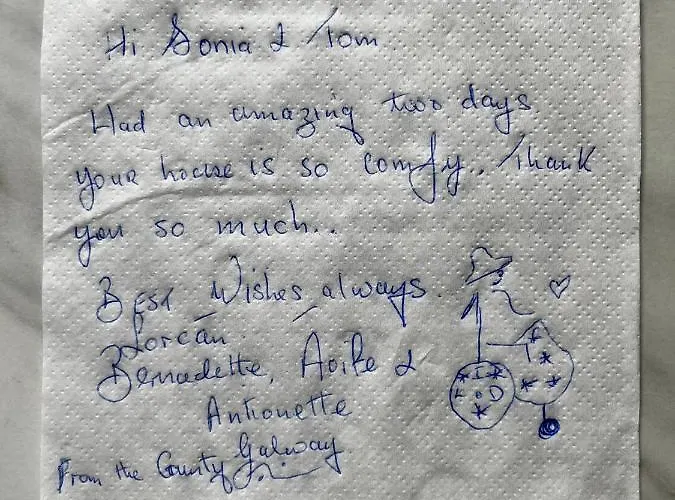 Hi Sonia & Tom
Had an amazing two days
your house is so comfy.. Thank
you so much..
Best Wishes always.
Lorcán
Bernadette, Aoife &
Antionette
From the County Galway